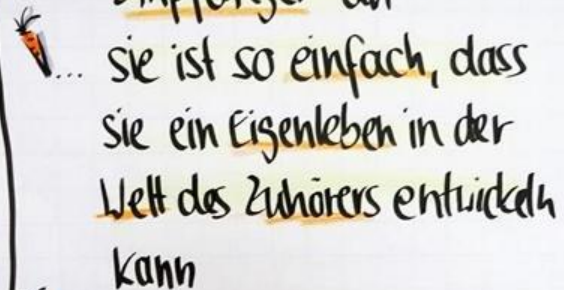 ... sie ist so einfach, dass
sie ein Eigenleben in der
Welt des Zuhörers entwickeln
kann